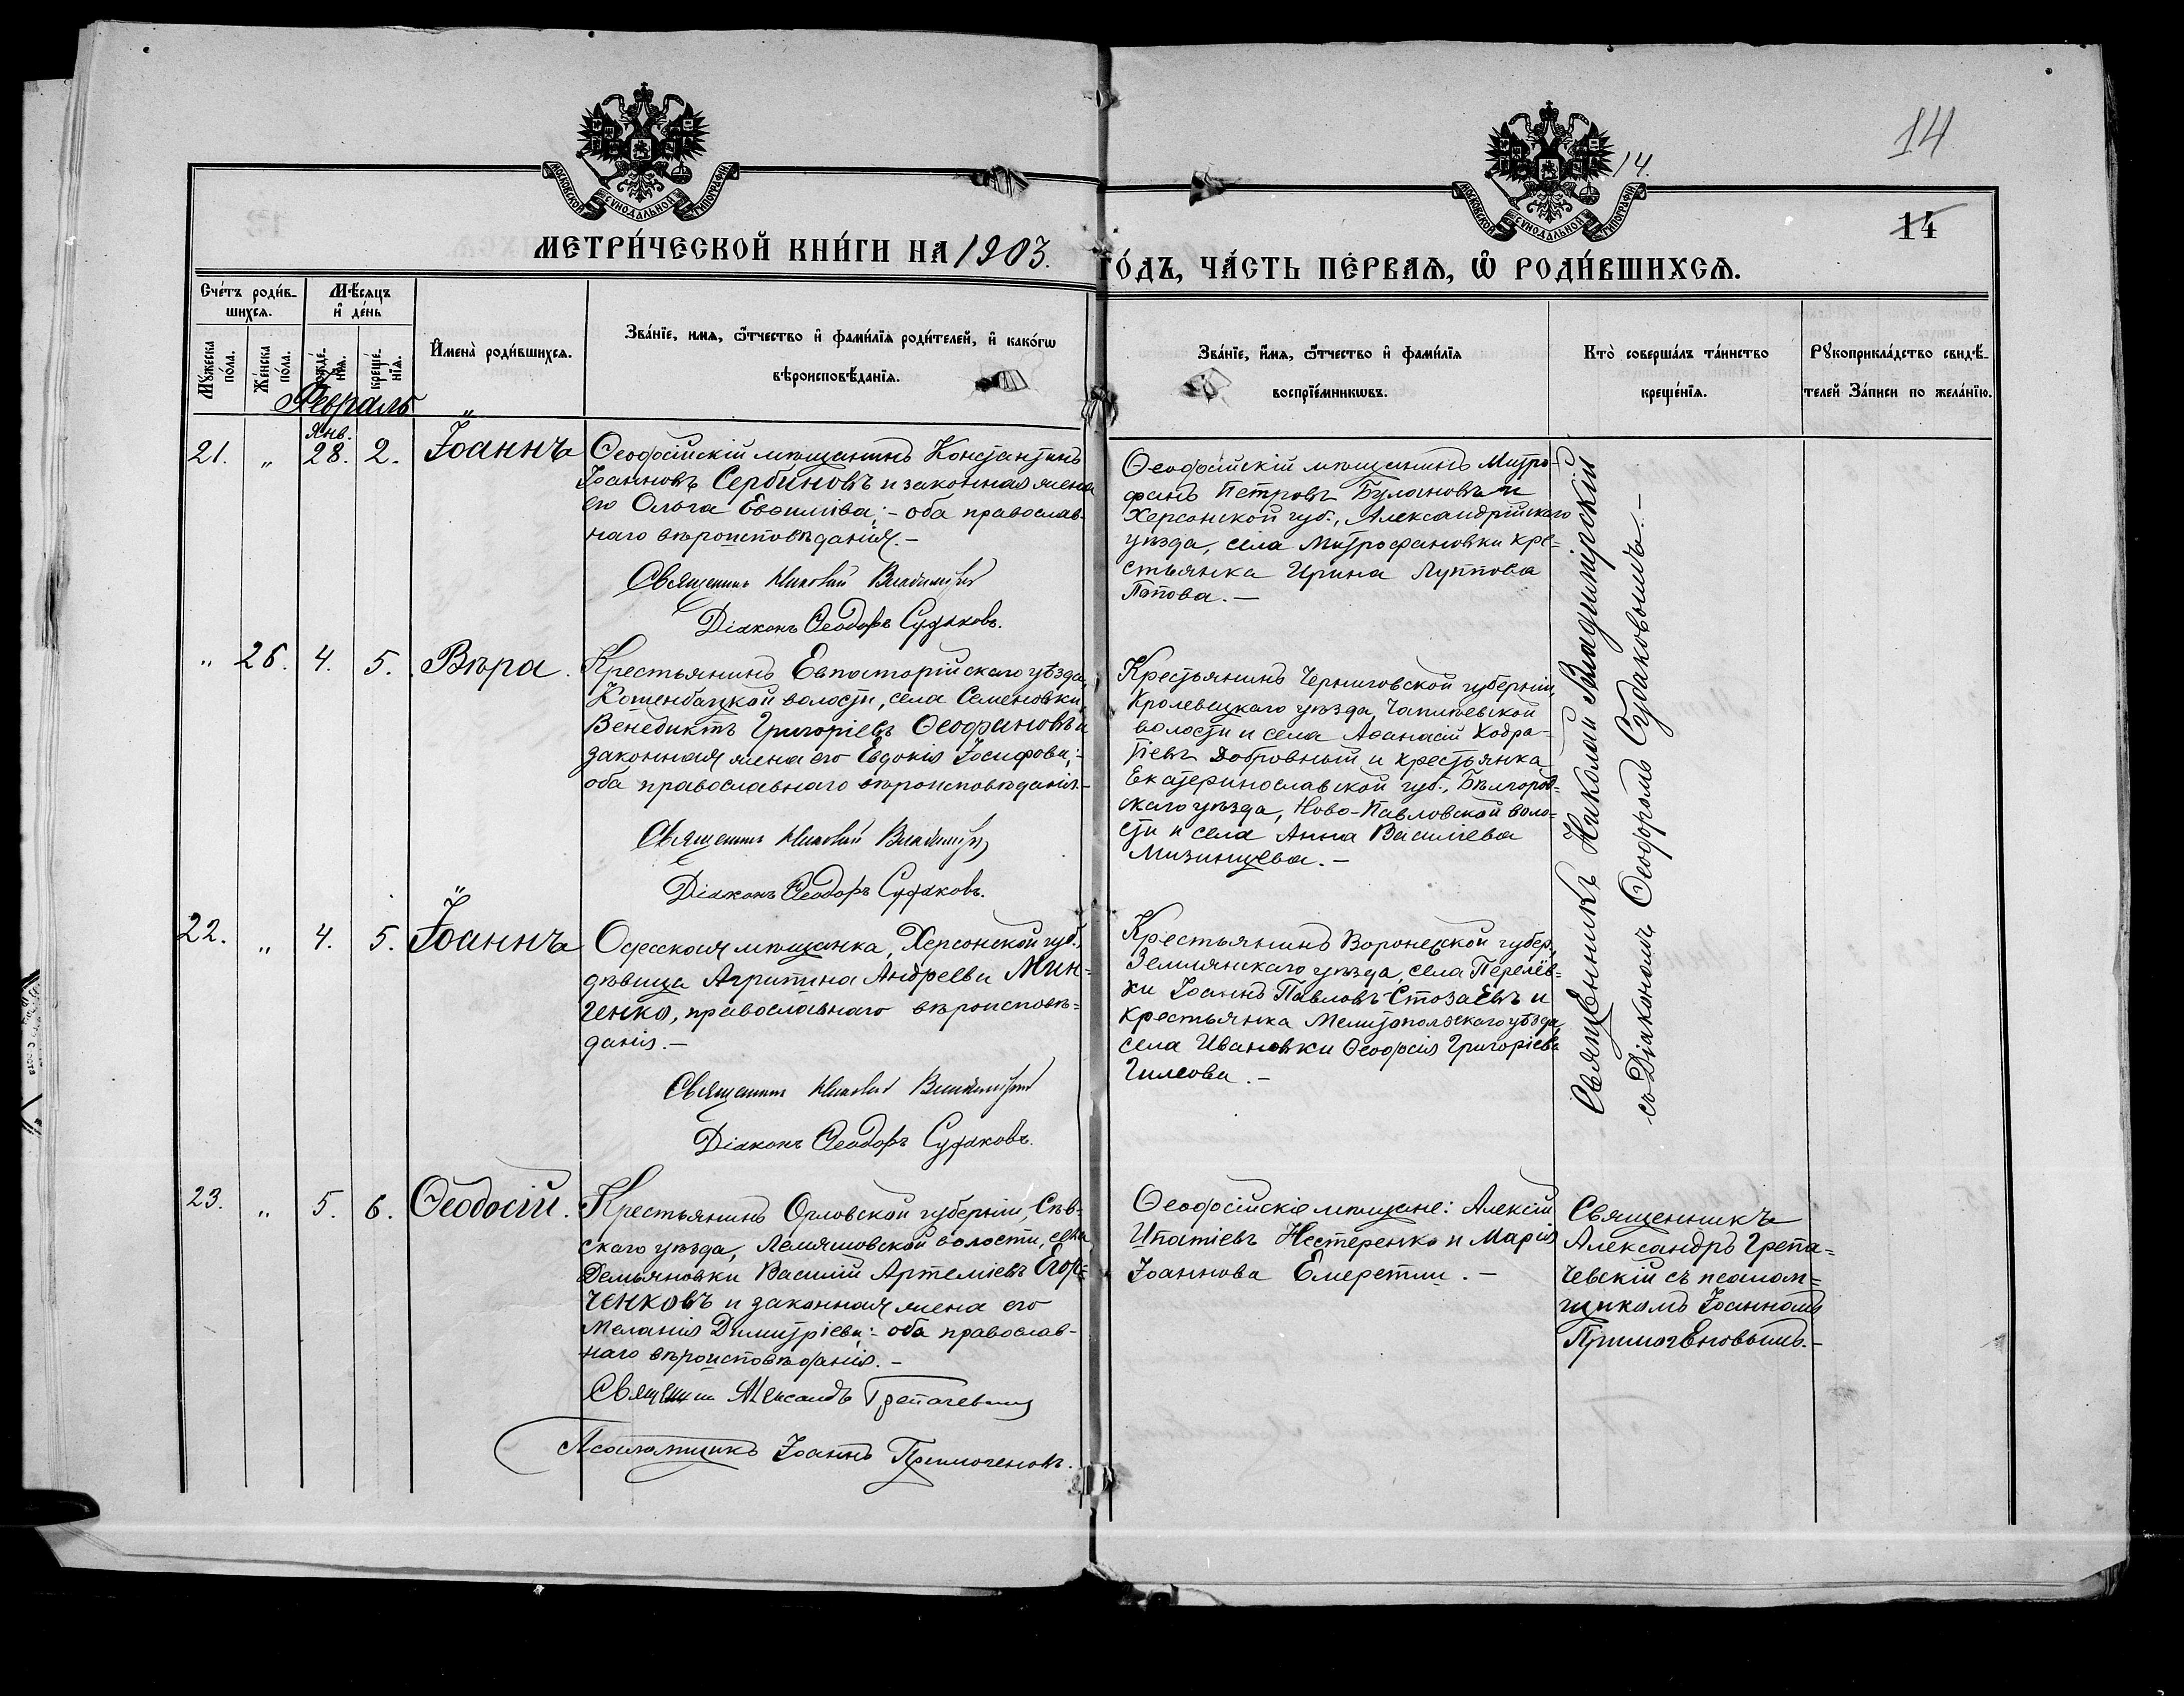 14
14.
14
МОСКОВСКОЙ СѴНОДАЛЬНОЙ ТИПОГРАФІИ
МОСКОВСКОЙ СѴНОДАЛЬНОЙ ТИПОГРАФІИ
МЕТРИ́ЧЕСКОЙ КНИ́ГИ НА 1903.
ГО́ДЪ, ЧА́СТЬ ПЕ́РВАѦ, Ѽ РОДИ́ВШИХСѦ.
Сче́тъ роди́в-
шихсѧ.
Мѣ́сѧцъ
и҆ де́нь
Мꙋ́жеска по́ла.
Же́нска по́ла.
рожде́нїѧ.
креще́нїѧ.
И҆мена̀ роди́вшихсѧ.
Зва́нїе, имѧ, ѻ҆́тчество и҆ фами́лїѧ роди́телей, и҆ како́гѡ
вѣроисповѣ́данїѧ.
Зва́нїе, и҆́мѧ, ѻ҆́тчество и҆ фами́лїѧ
воспрїе́мникѡвъ.
Кто̀ соверша́лъ та́инство
креще́нїѧ.
Рꙋкоприкла́дство свидѣ́-
телей За́писи по жела́нїю.
Февраль "
21. " Янв. 28. 2. Іоаннъ
Ѳеодосійскій мѣщанинъ Константинъ
Іоанновъ Сербиновъ и законная жена
его Ольга Евѳиміева; - оба православ-
наго вѣроисповѣданія. -
Священникъ Николай Владимірскій
Діаконъ Ѳеодоръ Судаковъ.
Ѳеодосійскій мѣщанинъ Митро-
фанъ Петровъ Булановъ и
Херсонской губ., Александрійскаго
уѣзда, села Митрофановки кре-
стьянка Ирина Луппова
Попова. -
Священникъ Николай Владимірскій
съ Діакономъ Ѳеодоромъ Судаковымъ. -
" 26. 4. 5. Вѣра.
Крестьянинъ Евпаторійскаго уѣзда,
волости, села Семеновки,
Венедиктъ Григоріевъ Ѳеофановъ и
законная жена его Евдокія Іосифова; -
оба православнаго вѣроисповѣданія. -
Священникъ Николай Владимірскій
Діаконъ Ѳеодоръ Судаковъ.
Крестьянинъ Черниговской губерніи,
Кролевецкаго уѣзда,
волости и села Аѳанасій
Добровный и крестьянка
Екатеринославской губ.,
скаго уѣзда, Ново-Павловской воло-
сти и села Анна Васильева
Мизинцева. -
22. " 4. 5. Іоаннъ
Одесская мѣщанка, Херсонской губ.,
дѣвица Агрипина Андреева Мин-
ченко, православнаго вѣроисповѣ-
данія. -
Священникъ Николай Владимірскій
Діаконъ Ѳеодоръ Судаковъ.
Крестьянинъ Воронежской губер.,
Землянскаго уѣзда, села Перелёв-
ки Іоаннъ Павловъ Стозаевъ и
крестьянка Мелитопольскаго уѣзда,
села Ивановки Ѳеодосія Григоріева
23. " 5. 6. Ѳеодосій.
Крестьянинъ Орловской губерніи, Сѣв-
скаго уѣзда, волости, села
Демьяновки Василій Артеміевъ Егор-
ченковъ и законная жена его
Меланія Димитріева; - оба православ-
наго вѣроисповѣданія. -
Священникъ Александръ Грепачевскій
Псаломщикъ Іоаннъ Примогеновъ.
Ѳеодосійскіе мѣщане: Алексій
Ипатіевъ Нестеренко и Марія
Іоаннова Емеретли. -
Священникъ
Александръ Грепа-
чевскій съ псалом-
щикомъ Іоанномъ
Примогеновымъ. -